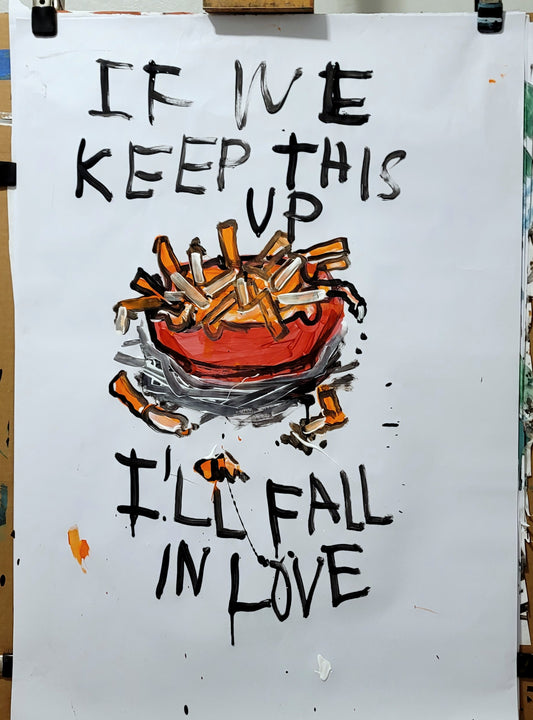 IF WE
KEEP THIS
UP
I'LL FALL
IN LOVE